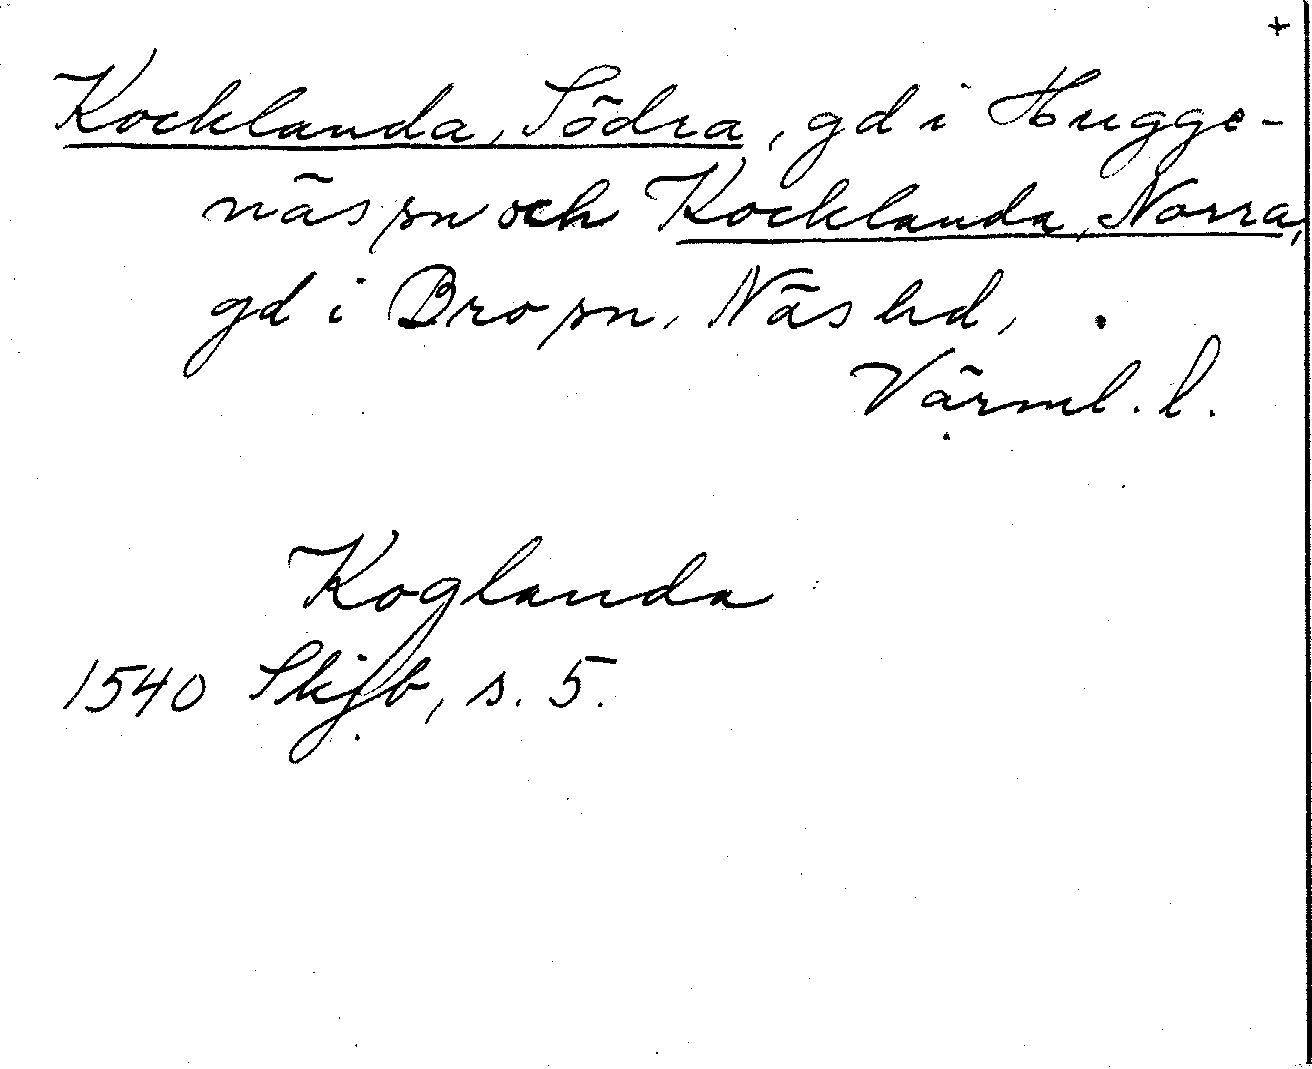 +
Kocklanda, Södra, gd i Hugge-
näs sn och Kocklanda, Norra,
gd i Bro sn, Näs hd,
Värml. l.
Koglanda
1540 Skjb, s. 5.